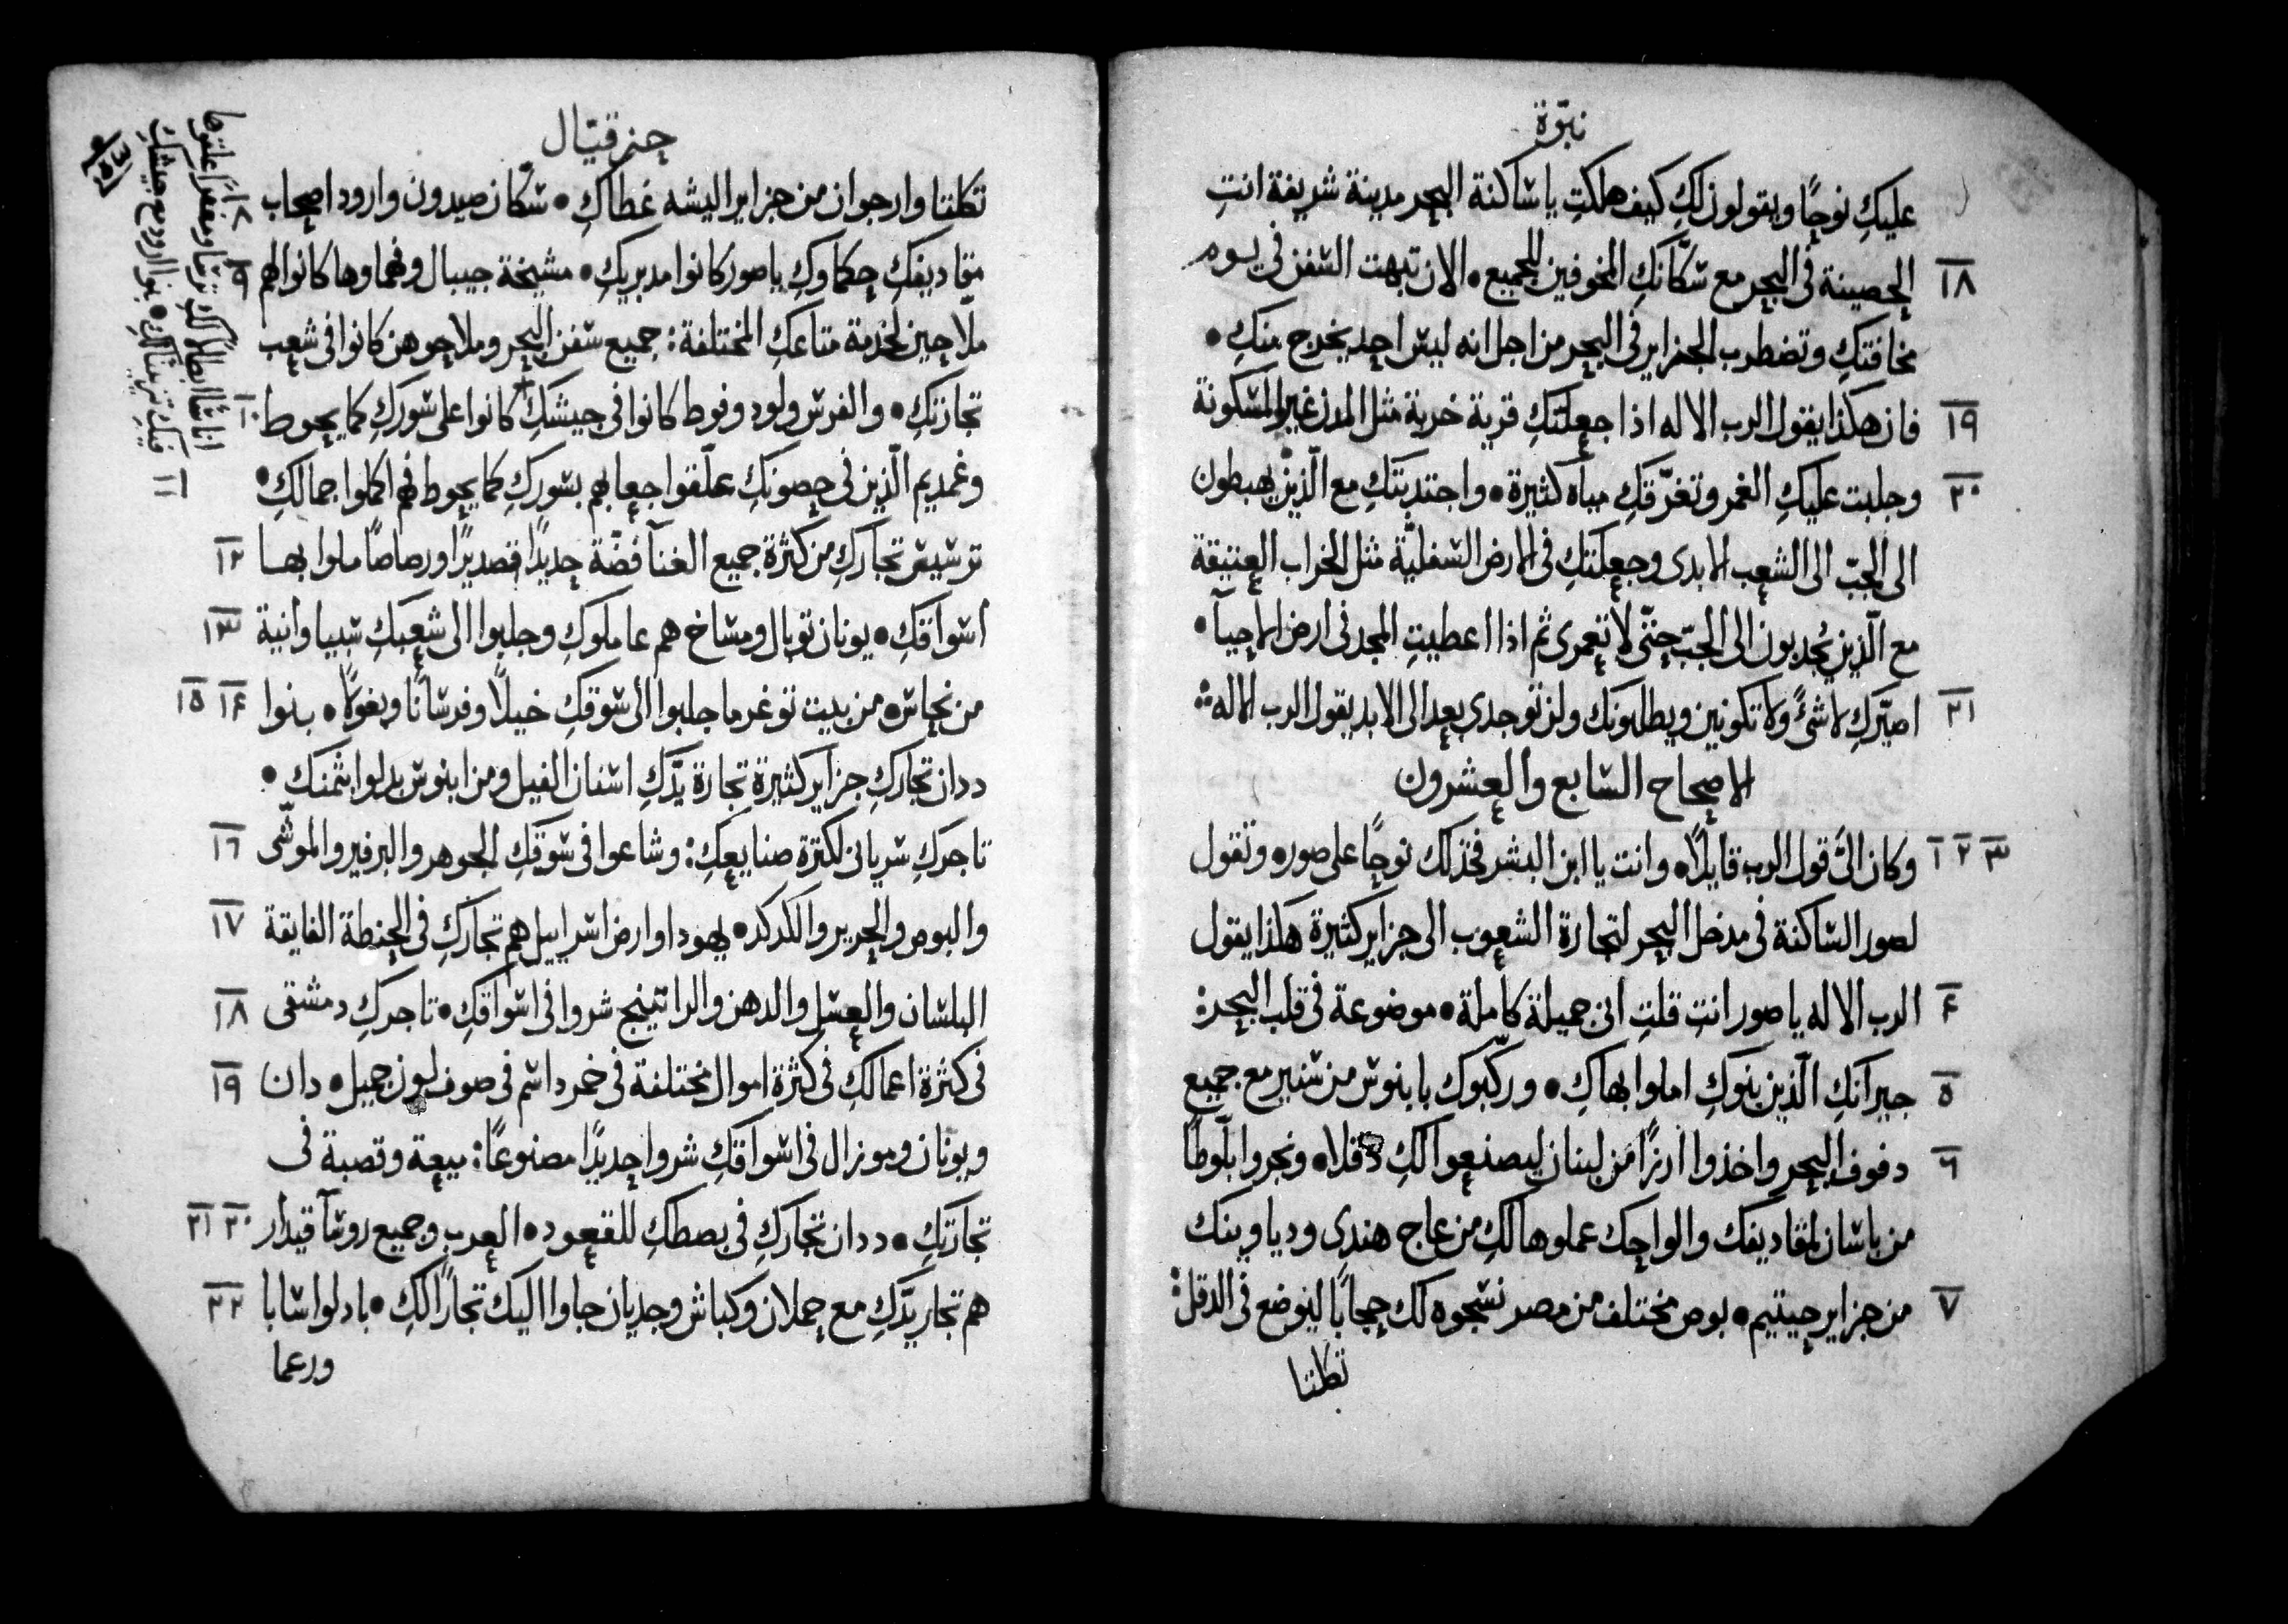 نبوّة
عليكِ نوحًا ويقولون لكِ كيف هلكتِ يا ساكنة البحر مدينة شريفة انتِ
١٨ الحصينة في البحر مع سكّانكِ المخوفين للجميع • الان تبهت السفن في يوم
مخافتكِ وتضطرب الجزاير في البحر من اجل انه ليس احد يخرج منكِ •
١٩ فان هكذا يقول الرب الاله اذا جعلتكِ قرية خربة مثل المدن غير المسكونة
٢٠ وجلبت عليكِ الغمر وتغرّقكِ مياه كثيرة • واجتذبتكِ مع الّذين يهبطون
الى الجبّ الى الشعب الابدى وجعلتكِ في الارض السفليّة مثل الخراب العتيقة
مع الّذين يُجدبون الى الجبّ حتّى لا تعمرى ثم اذا اعطيتِ المجد في ارض الاحيآ •
٢١ اصيّركِ لا شئً ولا تكونين ويطلبونك ولن توجدى بعد الى الابد يقول الرب الاله :
الاصحاح السابع والعشرون
١ ٢ ٣ وكان الىَّ قول الرب قايلًا • وانت يا ابن البشر فخذ لك نوحًا على صور • وتقول
لصور الساكنة في مدخل البحر لتجارة الشعوب الى جزاير كثيرة هكذا يقول
٤ الرب الاله يا صور انتِ قلتِ انى جميلة كاملة • موضوعة في قلب البحر :
٥ جيرانكِ الّذين بنوكِ املوا بهاكِ • وركّبوك بابنوس من سنير مع جميع
٦ دفوف البحر واخذوا ارزًا من لبنان ليصنعوا لكِ دقلا • ونجروا بلّوطًا
من باسان لمقاديفك والواحك عملوها لكِ من عاج هندى ودياوينك
٧ من جزاير حيتيم • بوص مختلف من مصر نسجوه لك حجابًا ليوضع في الدقل :
تكلتا
حزقيال
تكلتا وارجوان من جزاير اليشه غطاكِ • سكّان صيدون وارود اصحاب ٨
مقاديفكِ حكماوكِ يا صور كانوا مدبريكِ • مشيخة جيبال وفهماوها كانوا لهم ٩
ملّاحين لخدمة متاعكِ المختلفة : جميع سفن البحر وملاحوهن كانوا في شعب
تجارتكِ • والفرس ولود وفوط كانوا في جيشكِ كانوا على سوركِ كما يحوط ١٠
وغمديم الّذين في حصونكِ علّقوا جعابهم بسوركِ كما يحوط فهم اكملوا جمالكِ • ١١
ترسيس تجاركِ من كثرة جميع الغنآ فضّة حديدًا قصديرًا ورصاصًا ملوا بها ١٢
اسواقكِ • يونان توبال ومساخ هم عاملوكِ وجلبوا الى شعبكِ سبيا وانية ١٣
من نحاس • من بيت توغرما جلبوا الى سوقكِ خيلًا وفرسانًا وبغولًا • بنوا ١٤ ١٥
ددان تجاركِ جزاير كثيرة تجارة يدّكِ اسنان الفيل ومن ابنوس بدلوا بثمنك •
تاجركِ سريانى لكثرة صنايعكِ : وشاعوا في سوقكِ الجوهر والبرفير والموشّى ١٦
والبوص والحرير والكدكد • يهودا وارض اسراييل هم تجاركِ في الحنطة الفايقة ١٧
البلسان والعسل والدهن والراتينج شروا في اسواقكِ • تاجركِ دمشقى ١٨
في كثرة اعمالكِ في كثرة اموال مختلفة في خمر داسم في صوف لون جميل • دان ١٩
ويونان وموزال في اسواقكِ شروا حديدًا مصنوعًا : ميعة وقصبة في
تجارتكِ • ددان تجاركِ في بصطكِ للقعود • العرب وجميع روسآ قيدار ٢٠ ٢١
هم تجار يدّكِ مع حملان وكباش وجديان جاوا اليك تجارًا لكِ • بادلوا سابا ٢٢
ورعما